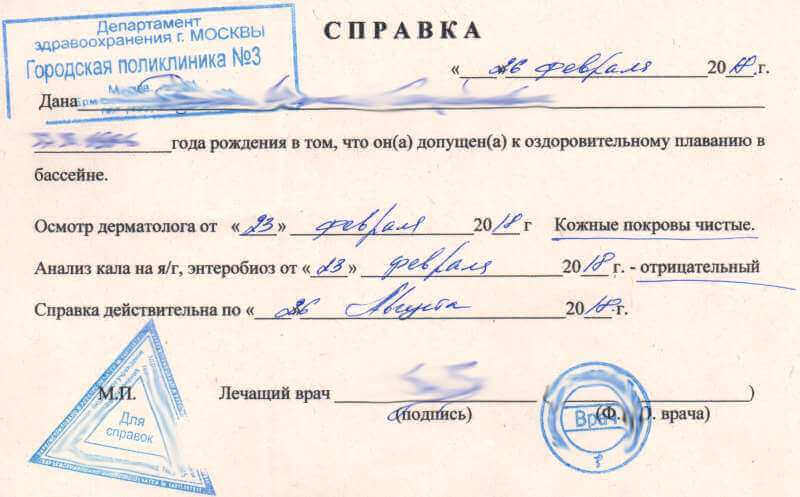 Департамент
здравоохранения г. МОСКВЫ
Городская поликлиника №3
СПРАВКА
« 26 февраля 2018 г.
Дана
года рождения в том, что он(а) допущен(а) к оздоровительному плаванию в
бассейне.
Осмотр дерматолога от «23» февраля 2018 г Кожные покровы чистые.
Анализ кала на я/г, энтеробиоз от «23» февраля 2018 г. - отрицательный
Справка действительна по « 26 Августа 2018 г.
М.П. Лечащий врач ( )
(подпись) (Ф. О. врача)
Для
справок
Врач